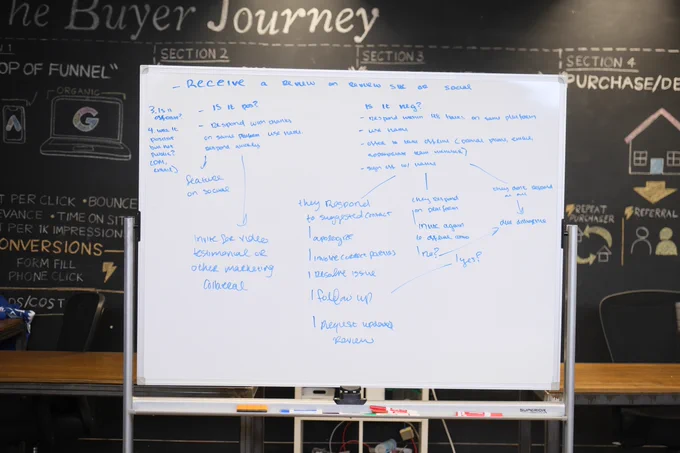 The Buyer Journey
SECTION 2
SECTION 3
SECTION 4
TOP OF FUNNEL"
PURCHASE/DE
ORGANIC
G
A
PER CLICK • BOUNCE
EVANCE • TIME ON SIT
PER 1K IMPRESSION
CONVERSIONS
FORM FILL
PHONE CLICK
DS/COST
REPEAT
PURCHASER
REFERRAL
- Receive a review on review site or social
3. Is it
4. was it
positive
but not
public?
(DM,
- Is it pos?
- Respond with thanks
on same platform use name
feature
on social
invite for video
testimonial or
other marketing
collateral
Is it neg?
- Respond within 48 hours on same platform
- use name
- offer to solve offline (phone, email
appropriate team member?)
- sign off w/ name
they Respond
to suggested contact
apologize
involve current parties
Resolve issue
follow up
Request updated
Review
they Respond
on platform
invite again
to offline
no?
yes?
they don't respond
at all